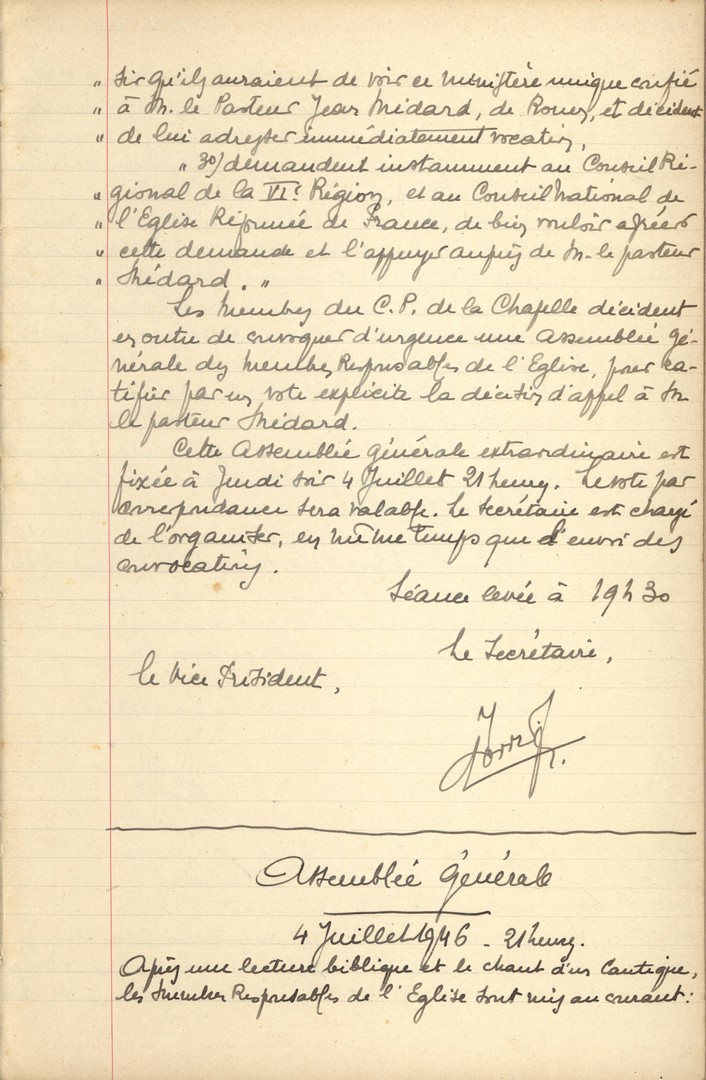 " sir qu'ils auraient de voir ce ministère unique confié
" à M. le Pasteur Jean Médard, de Rouen, et décident
" de lui adresser immédiatement vocation,
" 3o) demandent instamment au Conseil Ré-
" gional de la VIe Région, et au Conseil National de
" l'Eglise Réformée de France, de bien vouloir agréer
" cette demande et l'appuyer auprès de M. le pasteur
" Médard. "
Les Membres du C.P. de la Chapelle décident
en outre de convoquer d'urgence une Assemblée Gé-
nérale des Membres Responsables de l'Eglise, pour ra-
tifier par un vote explicite la décision d'appel à M
le pasteur Médard.
Cette Assemblée générale extraordinaire est
fixée à Jeudi soir 4 Juillet 21 heures. Le vote par
correspondance sera valable. Le Secrétaire est chargé
de l'organiser, en même temps que l'envoi des
convocations.
Séance levée à 19h30
Le Secrétaire,
le Vice Président,
Assemblée Générale
4 Juillet 1946 - 21 heures.
Après une lecture biblique et le chant d'un Cantique,
les Membres Responsables de l'Eglise sont mis au courant: